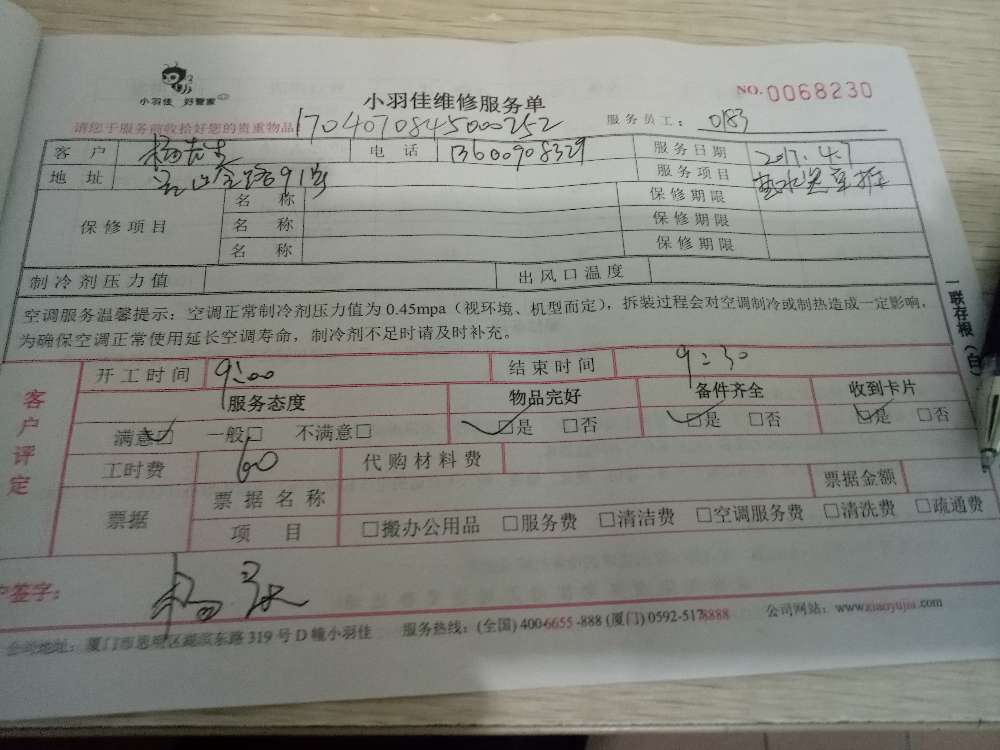 小羽佳 好管家
小羽佳维修服务单
NO.0068230
请您于服务前收拾好您的贵重物品
170407084500252
服务员工: 0183
客户 电话 13600908329 服务日期 2017.4.7
地址 服务项目
保修项目 名称 保修期限
名称 保修期限
名称 保修期限
制冷剂压力值 出风口温度
空调服务温馨提示:空调正常制冷剂压力值为 0.45mpa(视环境、机型而定),拆装过程会对空调制冷或制热造成一定影响,
为确保空调正常使用延长空调寿命,制冷剂不足时请及时补充。
一联存根(白)
客户评定
开工时间 9:00 结束时间 9:30
服务态度 物品完好 备件齐全 收到卡片
满意□ 一般□ 不满意□ □是 □否 □是 □否 □是 □否
工时费 60 代购材料费
票据 票据名称 票据金额
项目 □搬办公用品 □服务费 □清洁费 □空调服务费 □清洗费 □疏通费
户签字:
公司地址:厦门市思明区湖滨东路 319 号 D 幢小羽佳 服务热线:(全国) 400-6655-888 (厦门) 0592-5178888 公司网站:www.xiaoyujia.com